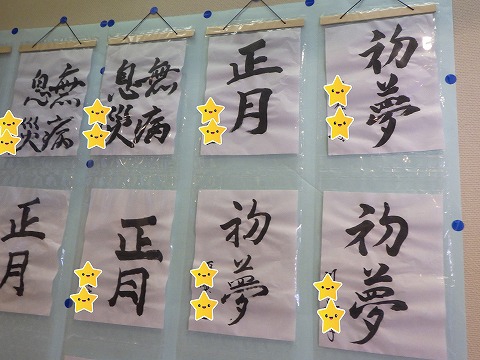 初夢
正月
無病
息災
無病
息災
初夢
初夢
正月
正月